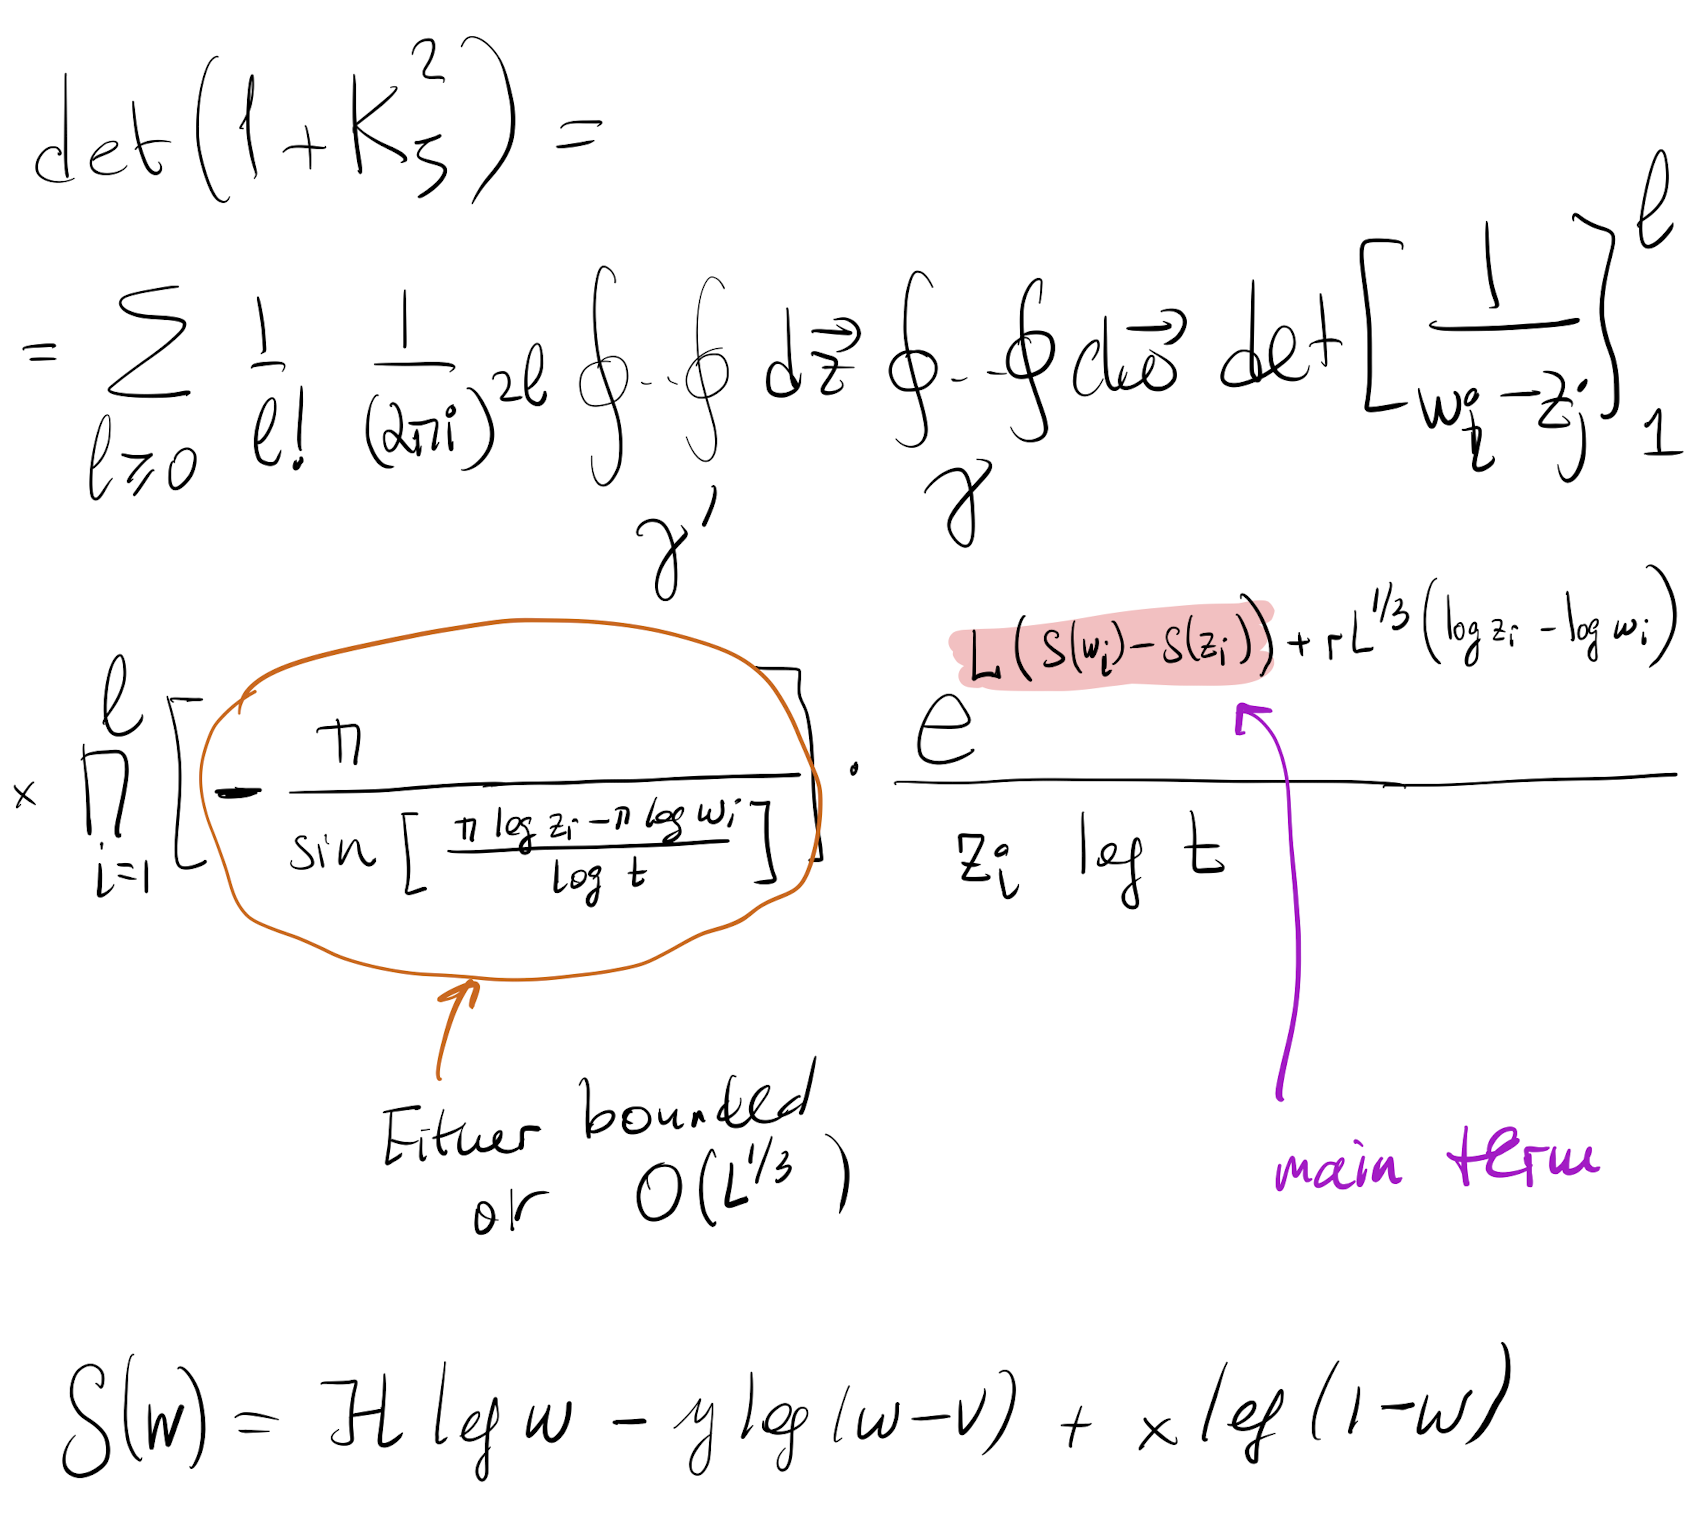 det(1+K_ζ^2) =
= ∑_{ℓ≥0} 1/ℓ! 1/(2πi)^{2ℓ} ∮..∮_{γ'} dz⃗ ∮..∮_γ dw⃗ det[1/(w_i−z_j)]_1^ℓ
× ∏_{i=1}^ℓ [− π / sin[(π log z_i − π log w_i)/log t]] · e^{L(S(w_i)−S(z_i)) + rL^{1/3}(log z_i − log w_i)} / (z_i log t)
Either bounded
or O(L^{1/3})
main term
S(w) = ℋ log w − y log(w−ν) + x log(1−w)